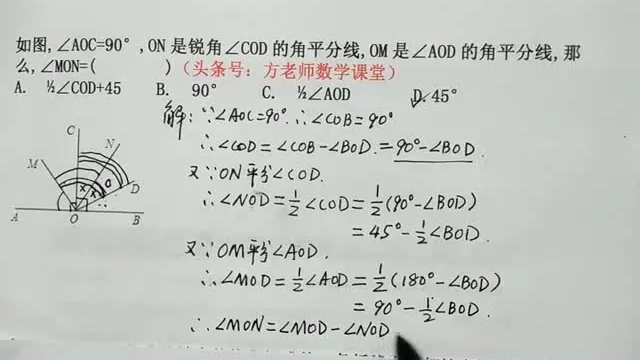 如图,∠AOC=90°,ON是锐角∠COD的角平分线,OM是∠AOD的角平分线,那
么,∠MON=( )(头条号：方老师数学课堂)
A. ½∠COD+45 B. 90° C. ½∠AOD D. 45°
解：∵∠AOC=90°.∴∠COB=90°
∴∠COD=∠COB-∠BOD.=90°-∠BOD.
又∵ON平分∠COD.
∴∠NOD=1/2∠COD=1/2(90°-∠BOD)
=45°-1/2∠BOD.
又∵OM平分∠AOD.
∴∠MOD=1/2∠AOD=1/2(180°-∠BOD)
=90°-1/2∠BOD.
∴∠MON=∠MOD-∠NOD
C
N
M
D
x x
A O B